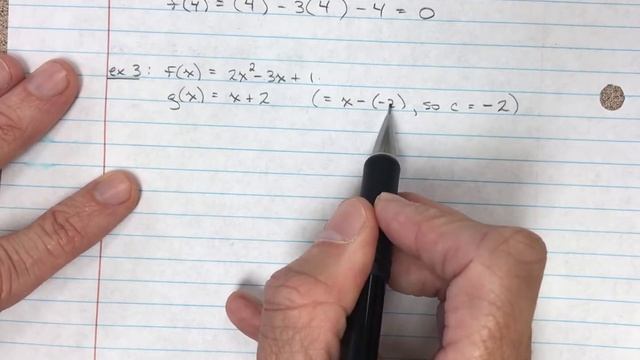 f(4) = (4)² - 3(4) - 4 = 0
ex 3: f(x) = 2x² - 3x + 1
g(x) = x + 2 (= x - (-2), so c = -2)